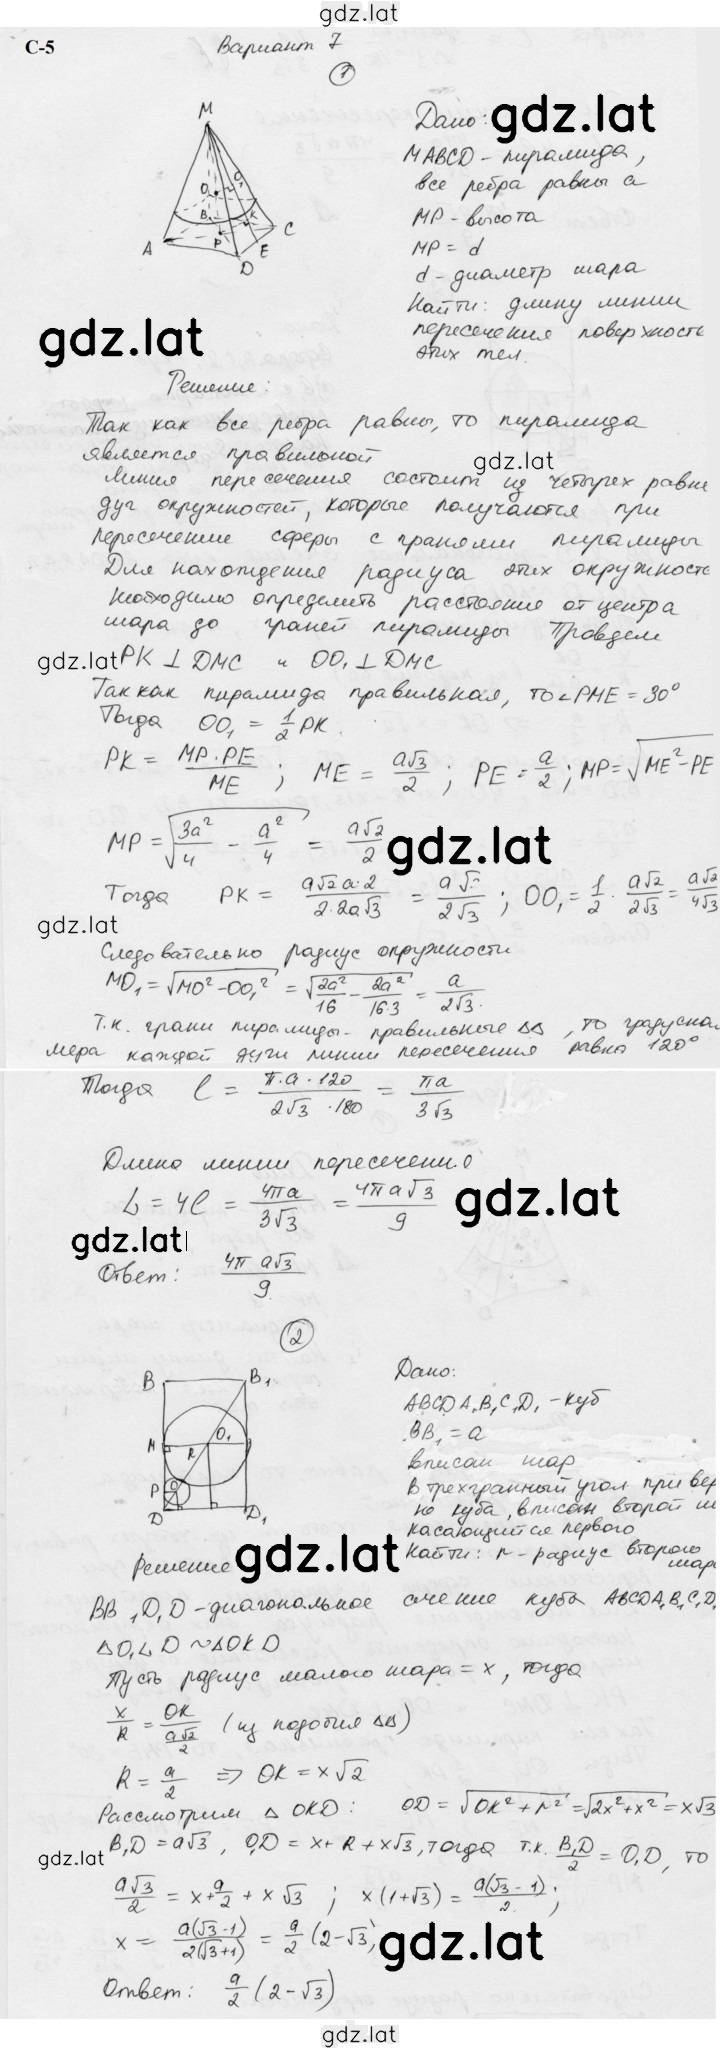 gdz.lat
С-5
Вариант 7
1
Дано:
gdz.lat
MABCD - пирамида,
все ребра равны a
MP - высота
MP = d
d - диаметр шара
Найти: длину линии
пересечения поверхность
этих тел.
M
O
O₁
B
K
C
A
P
E
D
gdz.lat
Решение:
Так как все ребра равны, то пирамида
является правильной
gdz.lat
Линия пересечения состоит из четырех равны
дуг окружностей, которые получаются при
пересечение сферы с гранями пирамиды
Для нахождения радиуса этих окружносте
необходимо определить расстояние от центра
шара до граней пирамиды Проведем
gdz.lat
PK ⊥ DMC и OO₁ ⊥ DMC
Так как пирамида правильная, то ∠PME = 30°
Тогда OO₁ = 1/2 PK.
PK = MP·PE/ME ; ME = a√3/2 ; PE = a/2 ; MP = √(ME² - PE
MP = √(3a²/4 - a²/4) = a√2/2
gdz.lat
Тогда PK = a√2a·2/2·2a√3 = a√2/2√3 ; OO₁ = 1/2 · a√2/2√3 = a√2/4√3
gdz.lat
Следовательно радиус окружности
MO₁ = √(MO² - OO₁²) = √(2a²/16 - 2a²/16·3) = a/2√3.
Т.к. грани пирамиды - правильные ΔΔ, то градусная
мера каждой дуги линии пересечения равна 120°
Тогда l = π·a·120/2√3·180 = πa/3√3
Длина линии пересечени.
L = 4l = 4πa/3√3 = 4πa√3/9
gdz.lat
gdz.lat
Ответ: 4π a√3/9.
2
B
B₁
M
R
O₁
P
O
D
D₁
Дано:
ABCDA₁B₁C₁D₁ - куб
BB₁ = a
вписан шар
В трехгранный угол при вер
не куба, вписан второй ш
касающийся первого
Найти: r - радиус второго
шара
gdz.lat
Решение
BB₁D₁D - диагональное сечение куба ABCDA₁B₁C₁D₁
ΔO₁LD ~ ΔOKD
Пусть радиус малого шара = x, тогда
x/R = OK/(a√2/2) (из подобия ΔΔ)
R = a/2 ⇒ OK = x√2
Рассмотрим Δ OKD: OD = √(OK² + r²) = √(2x² + x²) = x√3
B₁D = a√3, O₁D = x + R + x√3, тогда т.к. B₁D/2 = O₁D, то
gdz.lat
a√3/2 = x + a/2 + x√3 ; x(1+√3) = a(√3 - 1)/2 ;
x = a(√3-1)/2(√3+1) = a/2 (2-√3)
gdz.lat
Ответ: a/2 (2-√3)
gdz.lat